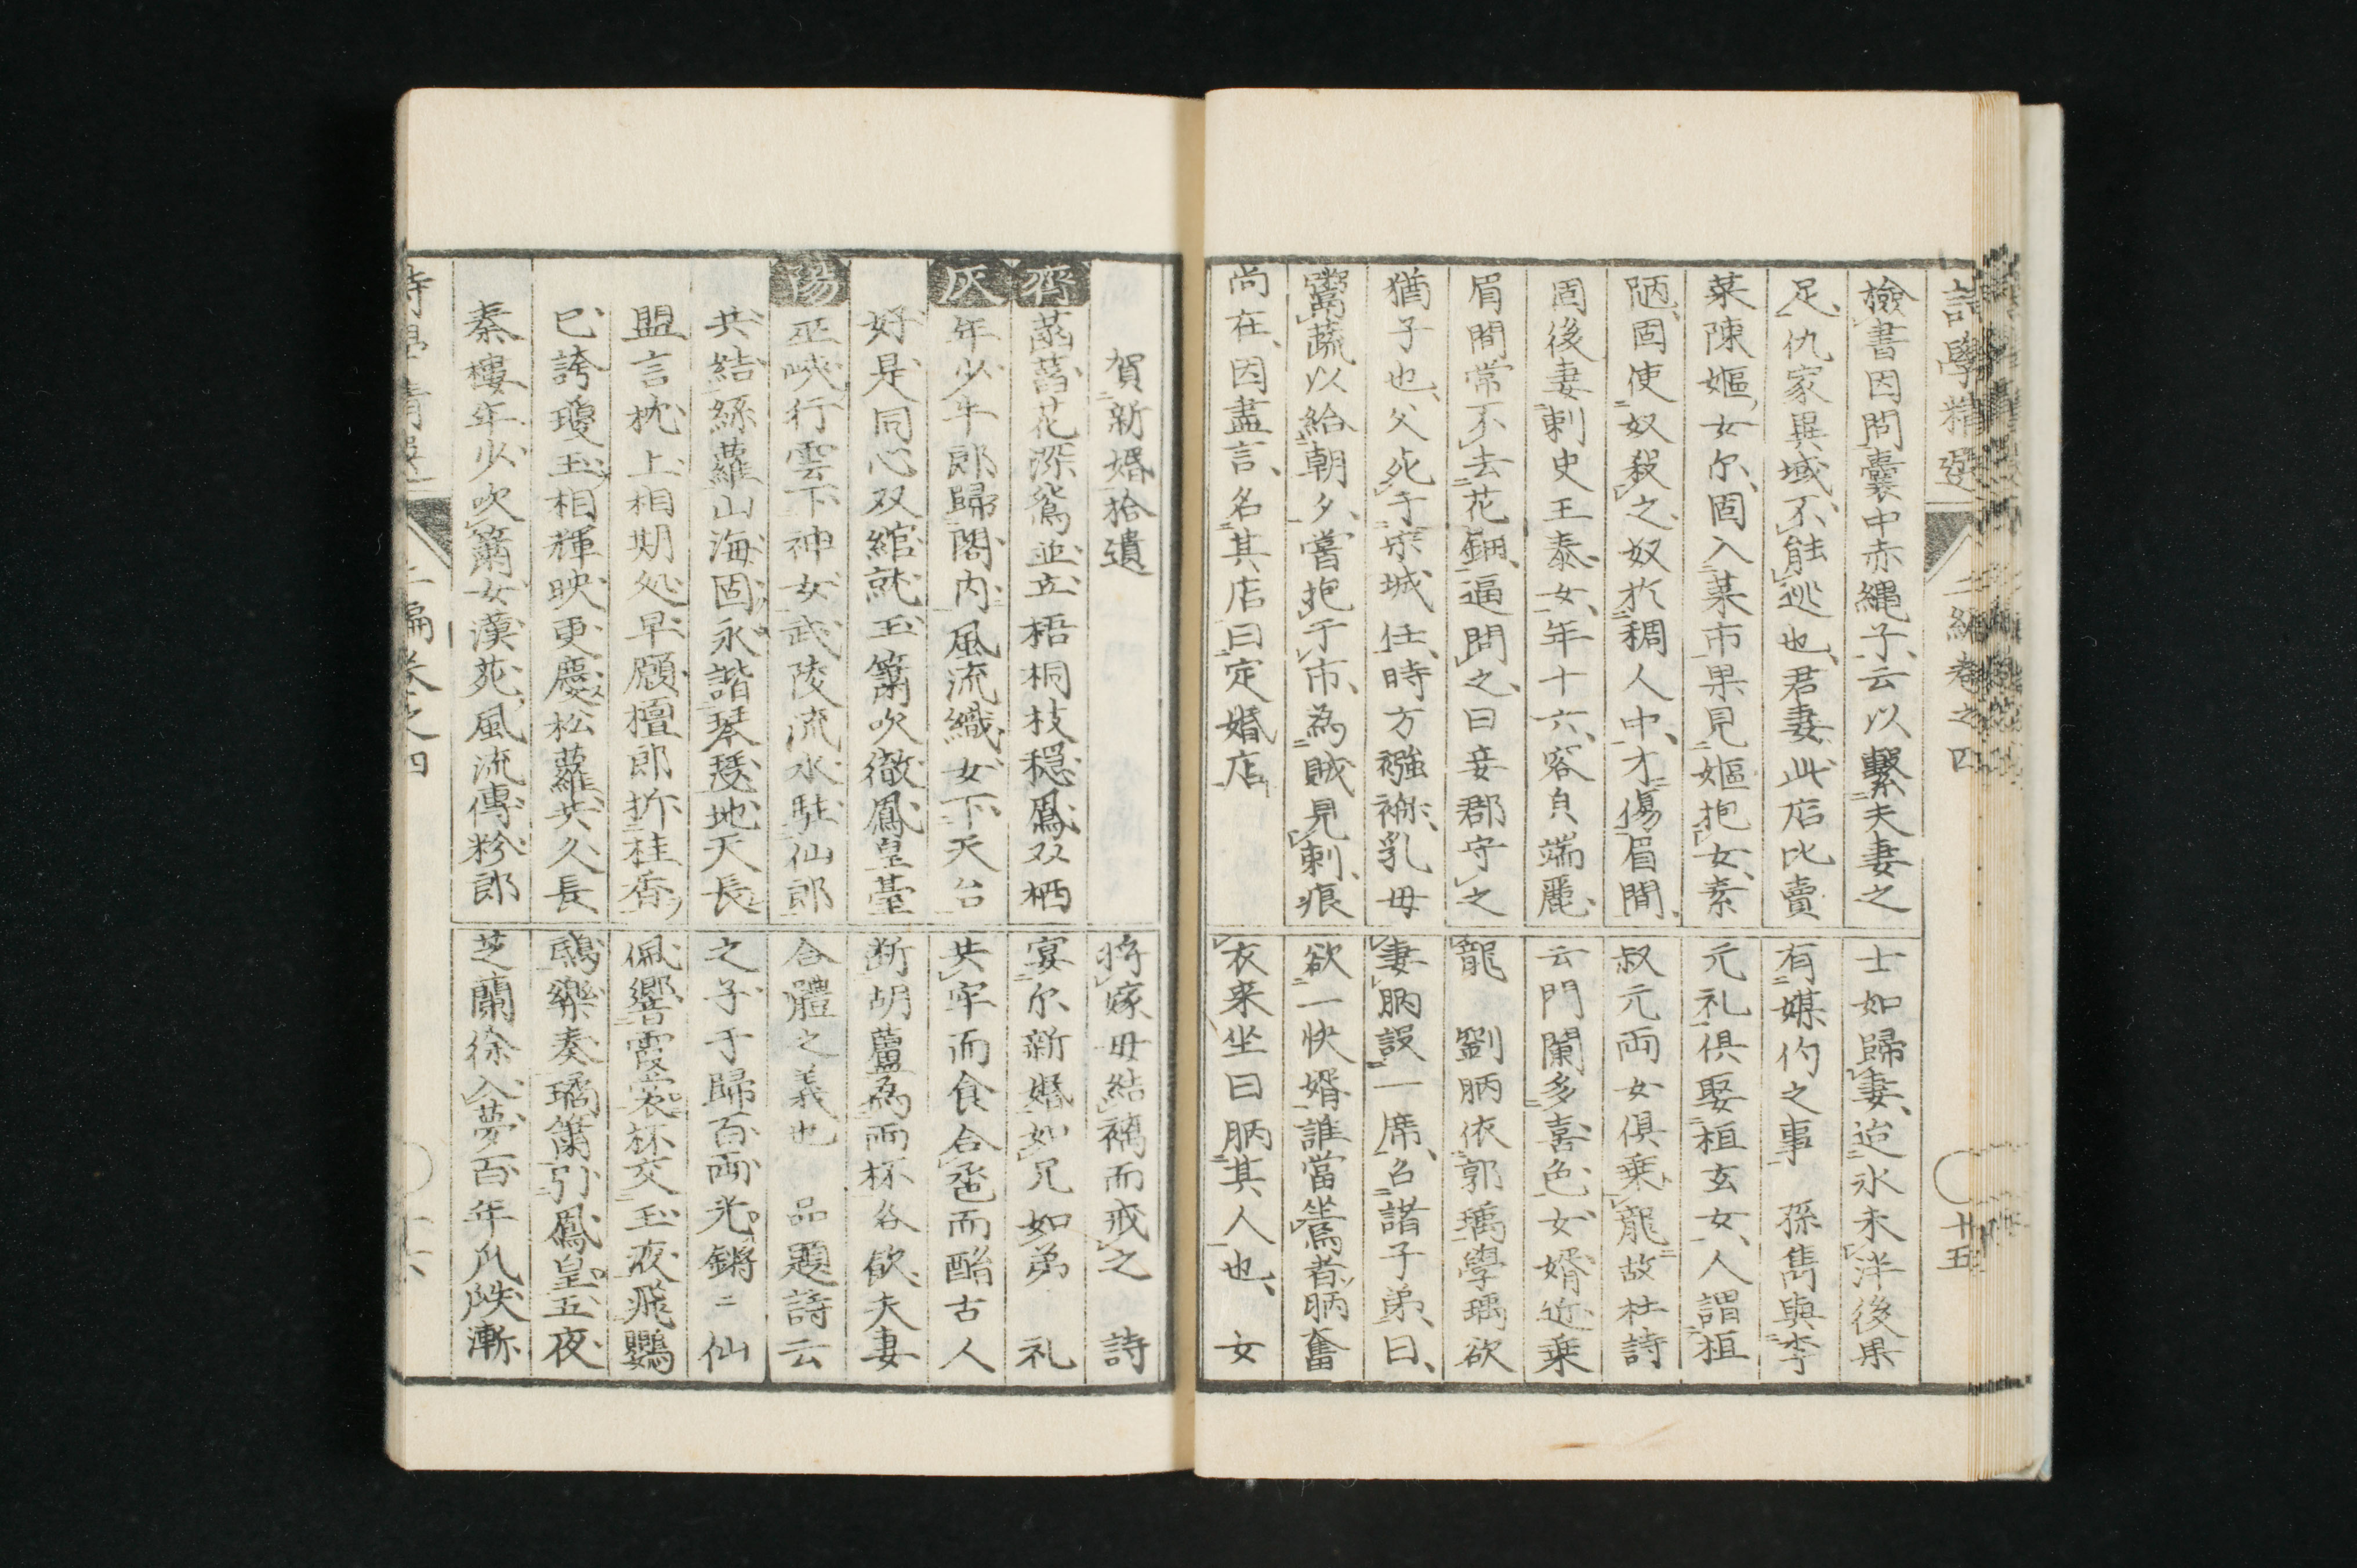 詩學精選
二編卷之四
廿五
檢書因問囊中赤縄子云以繫夫妻之
足仇家異域不能逃也君妻此店北賣
菜陳嫗女尓固入菜市果見嫗抱女素
陋固使奴殺之奴於稠人中才傷眉間
固後妻刺史王泰女年十六容皃端麗
眉間常不去花鈿逼問之曰妾郡守之
猶子也父死于宋城任時方襁褓乳毋
鬻蔬以給朝夕嘗抱于市為賊見刺痕
尚在因盡言名其店曰定婚店
士如歸妻迨氷未泮後果
有媒妁之事 孫雋與李
元礼俱娶桓玄女人謂桓
叔元両女俱乗龍故杜詩
云門闌多喜色女婿近乗
龍 劉昞依郭瑀學瑀欲
妻昞設一席名諸子弟曰
欲一快婿誰當坐焉者昞奮
衣来坐曰昞其人也 女
賀新婚拾遺
齊 菡萏花深鴛並立梧桐枝穏鳳双栖
灰 年少牛郎歸閣内風流織女下天台
好是同心双綰就玉簫吹徹鳳皇臺
陽 巫峽行雲下神女武陵流水駐仙郎
共結絲蘿山海固永諧琴瑟地天長
盟言枕上相期処早願檀郎折桂香
已誇瓊玉相輝映更慶松蘿共久長
秦樓年少吹簫女漢苑風流傳粉郎
將嫁毋結褵而戒之 詩
宴尓新婚如兄如弟 礼
共牢而食合卺而酳古人
断胡蘆為両杯各飲夫妻
合體之義也 品題詩云
之子于歸百両光鏘〻仙
佩響霞裳杯交玉夜飛鸚
鵡樂奏璚簫引鳳皇五夜
芝蘭徐入夢百年瓜瓞漸
二編卷之四